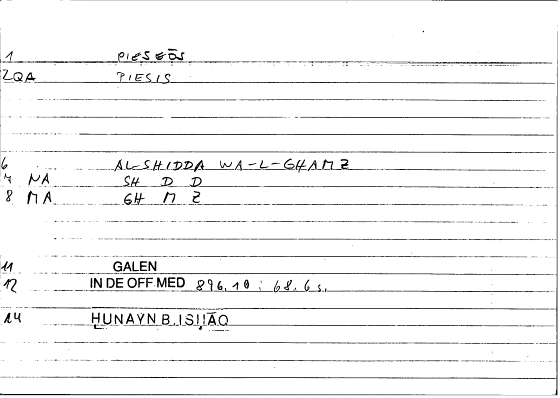 1 PIESEŌS
2QA PIESIS
6 AL-SHIDDA WA-L-GHAMZ
7 NA SH D D
8 MA GH M Z
11 GALEN
12 IN DE OFF MED 896.10 : 68.6 s.
14 ḤUNAYN B. ISḤĀQ